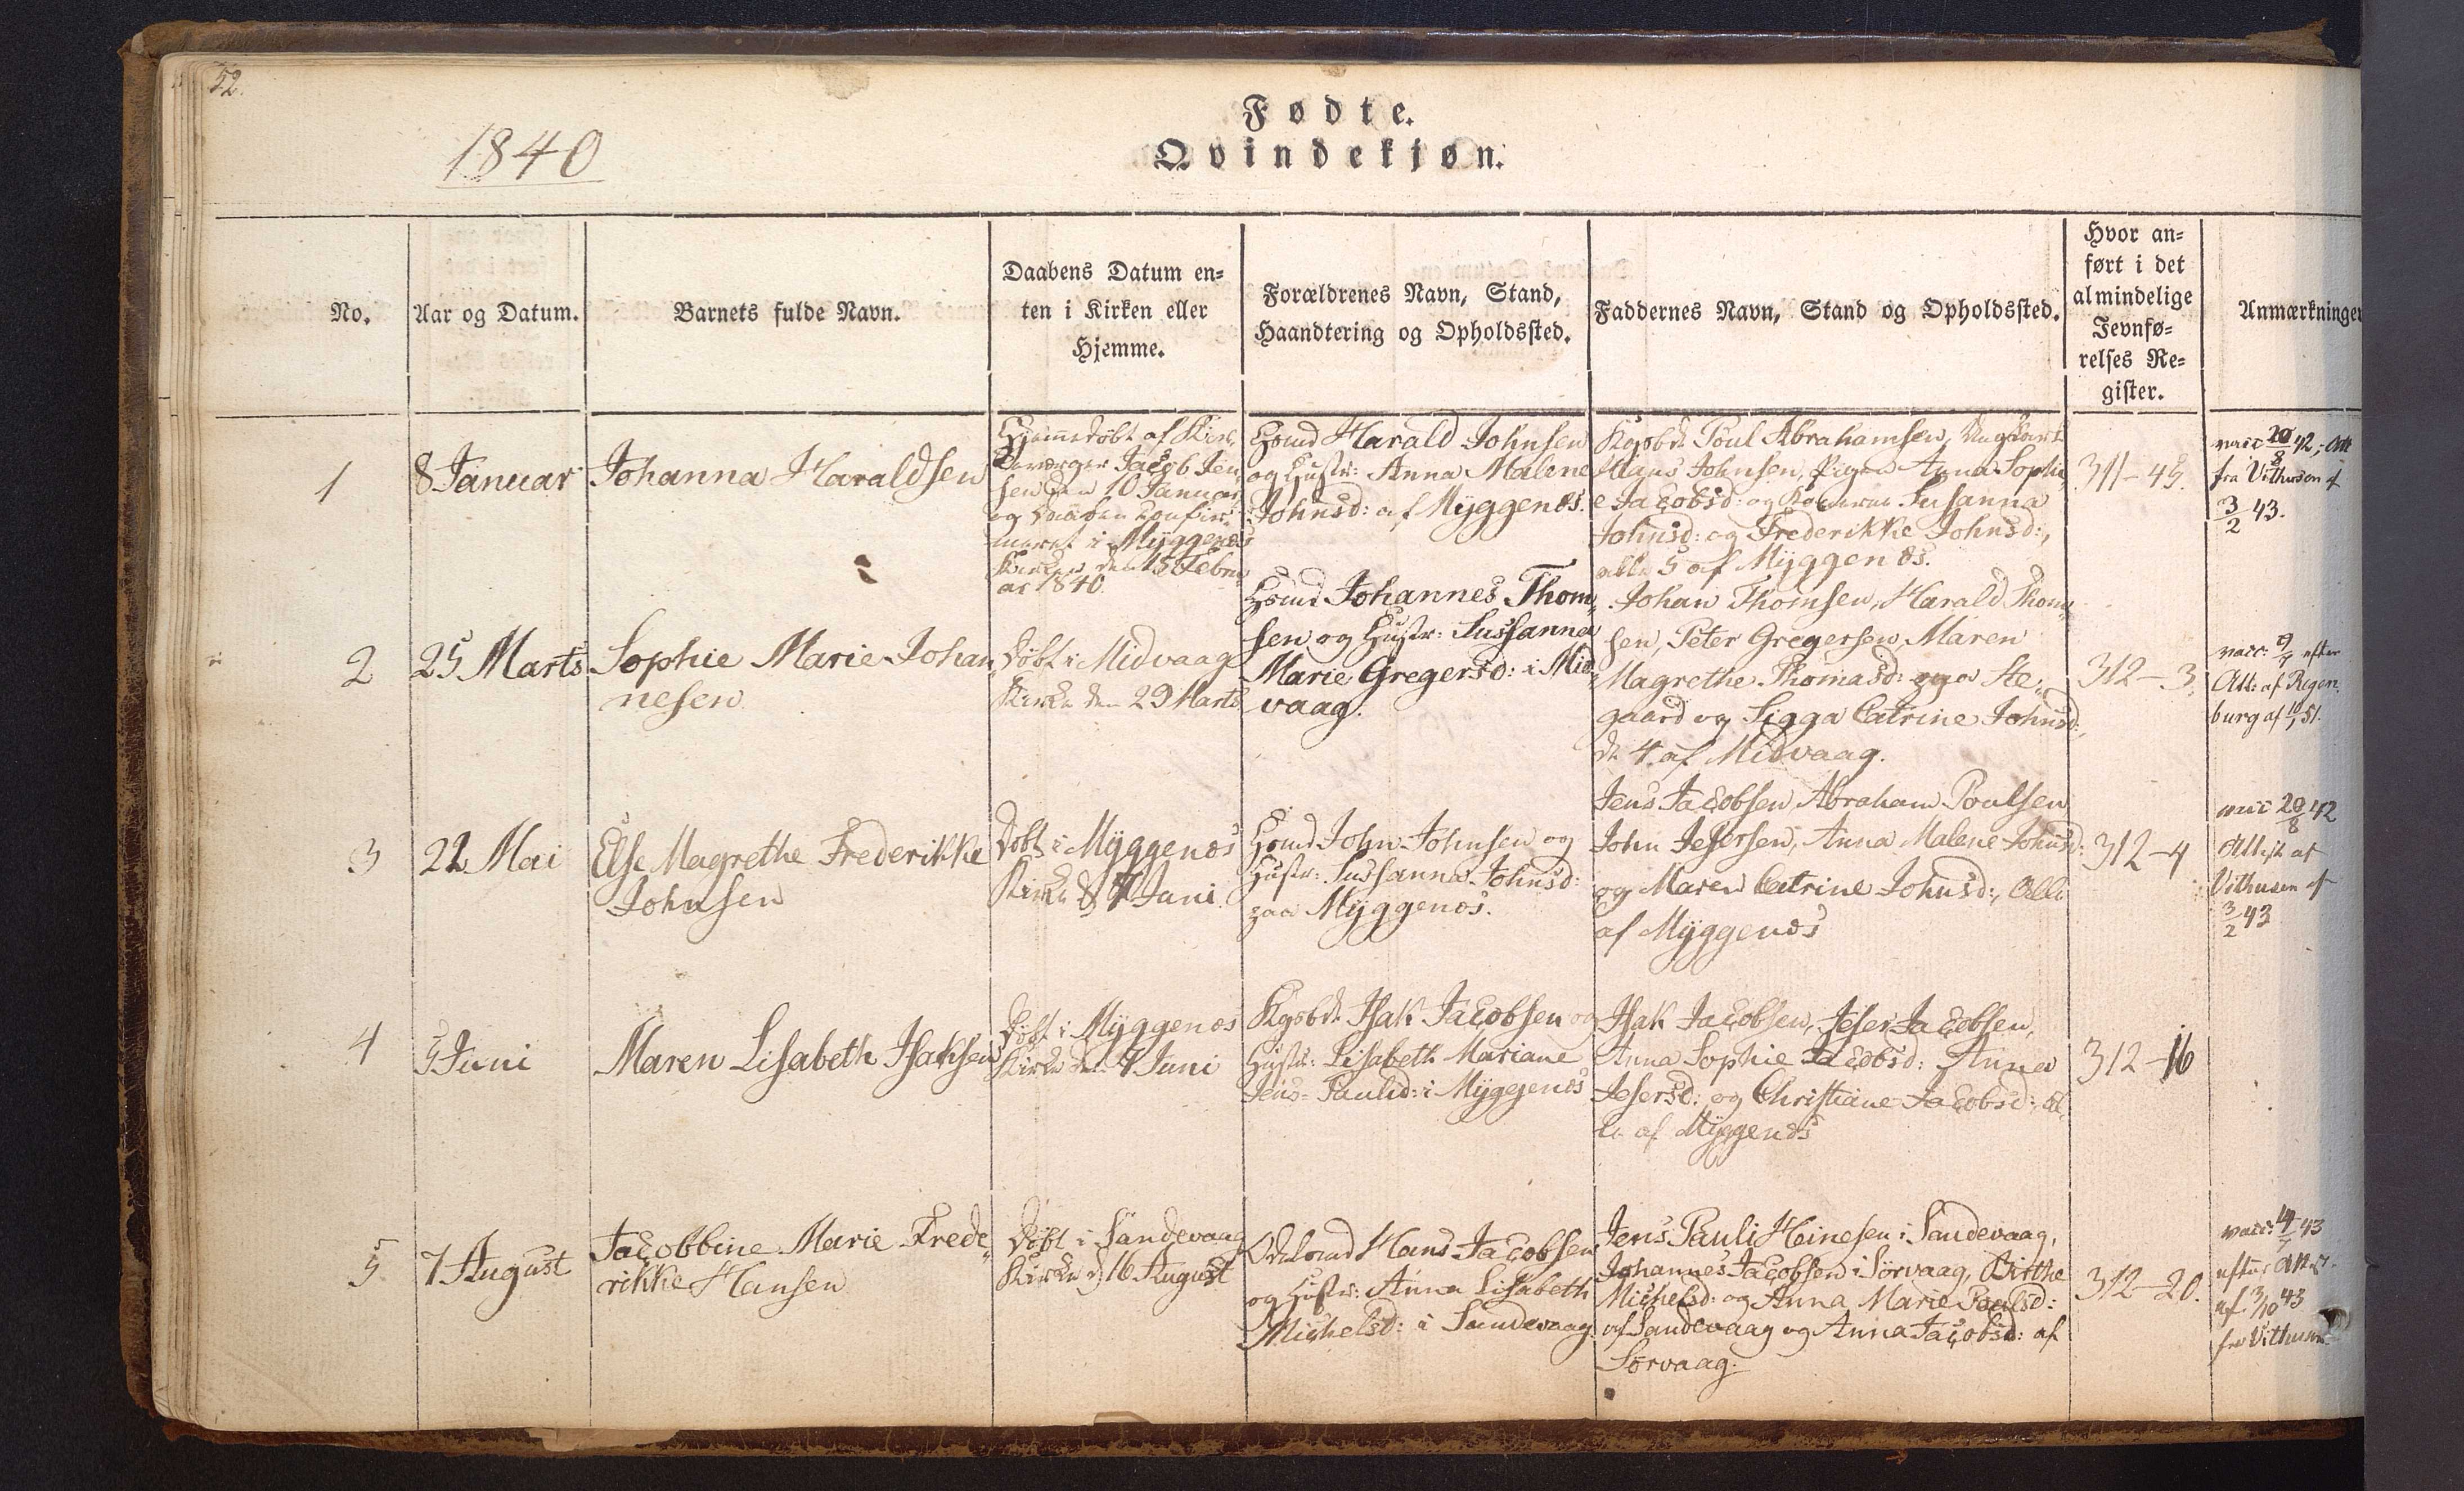 52.
1840
Fødte.
Qvindekjøn.
No.
Aar og Datum.
Barnets fulde Navn.
Daabens Datum en=
ten i Kirken eller
Hjemme.
Forældrenes Navn, Stand,
Haandtering og Opholdssted.
Faddernes Navn, Stand og Opholdssted.
Hvor an=
ført i det
almindelige
Jevnfø=
relses Re=
gister.
Anmærkninger
1
8 Januar
Johanna Haraldsen
Hjemmedöbt af Kirke
værger Jacob Jen
sen den 10 Januar
og Daaben confir
meret i Myggenæs
Kirke den 15 Febru
ar 1840.
Harald Johnsen
og Hustr: Anna Malene
Johnsd: af Myggenæs.
Kgsbd. Poul Abrahamsen, Ungkarl
Hans Johnsen, Pigen Anna Sophi
e Jacobsd: og Konerne Susanna
Johnsd: og Frederikke Johnsd:,
alle 5 af Myggenæs.
311-45.
vacc 20/8 42, Att
fra Vithusen af
3/2 43.
2
25 Marts
Sophie Marie Johan
nesen
Döbt i Midvaag
Kirke den 29 Marts
Johannes Thom
sen og Hustr: Sussanna
Marie Gregersd: i Mid
vaag.
Johan Thomsen, Harald Thom
sen, Peter Gregersen, Maren
Magrethe Thomasd: paa Ste
gaard og Sigga Catrine Johnsd:,
de 4 af Midvaag.
312-3.
vacc: efter
Att: af Regen
burg af 10/1 51.
3
22 Mai
Else Magrethe Frederikke
Johnsen
Döbt i Myggenæs
Kirke d. 7 Juni.
John Johnsen og
Hustr: Sussanna Johnsd:
paa Myggenæs.
Jens Jacobsen, Abraham Poulsen
John Jesersen, Anna Malene Johnsd:
og Maren Catrine Johnsd:, Alle
af Myggenæs
312-4
vacc 20/8 42
Attest af
Vithusen af
3/2 43
4
5 Juni
Maren Lisabeth Isaksen
Döbt i Myggenæs
Kirke den 7 Juni
Kgsbd. Isak Jacobsen og
Hustr: Lisabeth Mariane
Jens-Paulsd: i Myggenæs
Isak Jacobsen, Jeser Jacobsen,
Anna Sophie Jacobsd: Anna
Jesersd: og Christiane Jacobsd:, al
le af Myggenæs
312-16
5
7 August
Jacobbine Marie Frede
rikke Hansen
Döbt i Sandevaag
Kirke d. 16 August
Odelsmd Hans Jacobsen
og Hustr: Anna Lisabeth
Michelsd: i Sandevaag
Jens Pauli Heinesen i Sandevaag,
Johannes Jacobsen i Sörvaag, Birthe
Michelsd: og Anna Marie Poulsd:
af Sandevaag og Anna Jacobsd: af
Sörvaag.
312-20.
vacc: 43
efter Att:
af 3/10 43
fra Vithusen